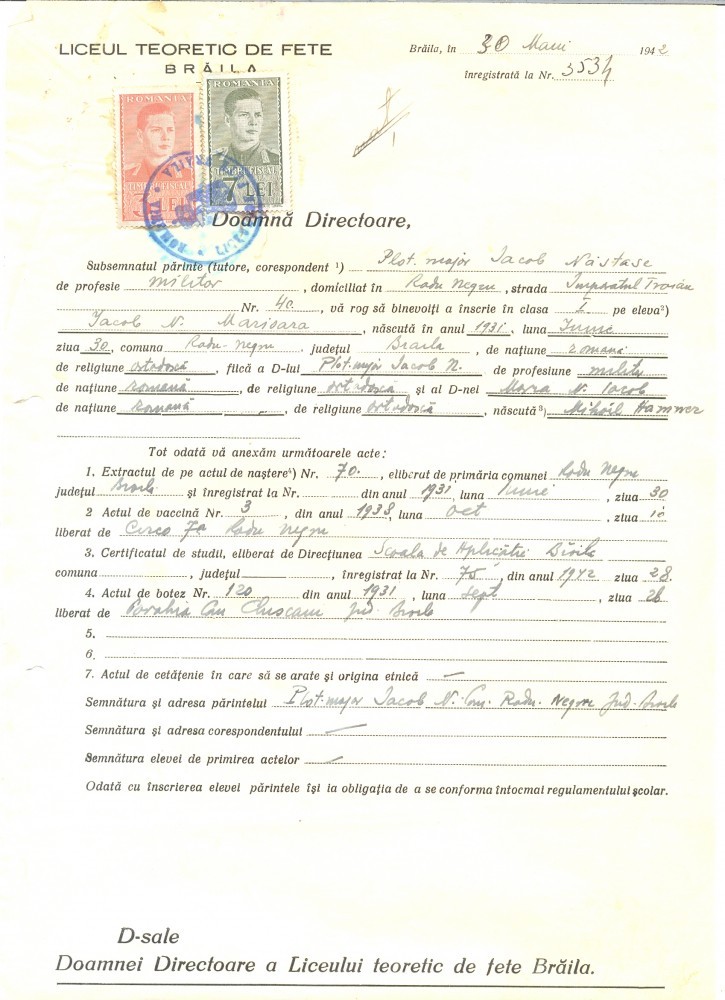 LICEUL TEORETIC DE FETE
BRĂILA
Brăila, în 30 Maui 1942
înregistrată la Nr. 3534
ROMANIA
ROMANIA
TIMBRU FISCAL
TIMBRU FISCAL
3 LEI
7 LEI
Doamnă Directoare,
Subsemnatul părinte (tutore, corespondent ¹) Plot. major Iacob Năstase
de profesie militar, domiciliat în Radu Negru, strada Împăratul Traian
Nr. 40, vă rog să binevoiți a înscrie în clasa I pe eleva²)
Iacob N. Marioara, născută în anul 1931, luna Iunie
ziua 30, comuna Radu-Negru județul Braila, de națiune romană
de religiune ortodoxă, fiică a D-lui Plot. major Iacob N. de profesiune militar
de națiune Romană, de religiune ortodoxă și al D-nei Maria N. Iacob
de națiune Romană, de religiune ortodoxă, născută³) Mihail Hammer
Tot odată vă anexăm următoarele acte:
1. Extractul de pe actul de naștere⁴) Nr. 70, eliberat de primăria comunei Radu Negru
județul Braila și înregistrat la Nr. din anul 1931, luna Iunie, ziua 30
2 Actul de vaccină Nr. 3, din anul 1938, luna Oct, ziua 10
liberat de Circo 7a Radu Negru
3. Certificatul de studii, eliberat de Direcțiunea Scoala de Aplicatie Brăila
comuna, județul, înregistrat la Nr. 75, din anul 1942 ziua 28
4. Actul de botez Nr. 120 din anul 1931, luna Sept, ziua 26
liberat de Parohia Com Jud. Braila
5.
6.
7. Actul de cetățenie în care să se arate și origina etnică —
Semnătura și adresa părintelui Plot. major Iacob N. Com. Radu-Negru Jud. Braila
Semnătura și adresa corespondentului —
Semnătura elevei de primirea actelor —
Odată cu înscrierea elevei părintele își ia obligația de a se conforma întocmai regulamentului școlar.
D-sale
Doamnei Directoare a Liceului teoretic de fete Brăila.